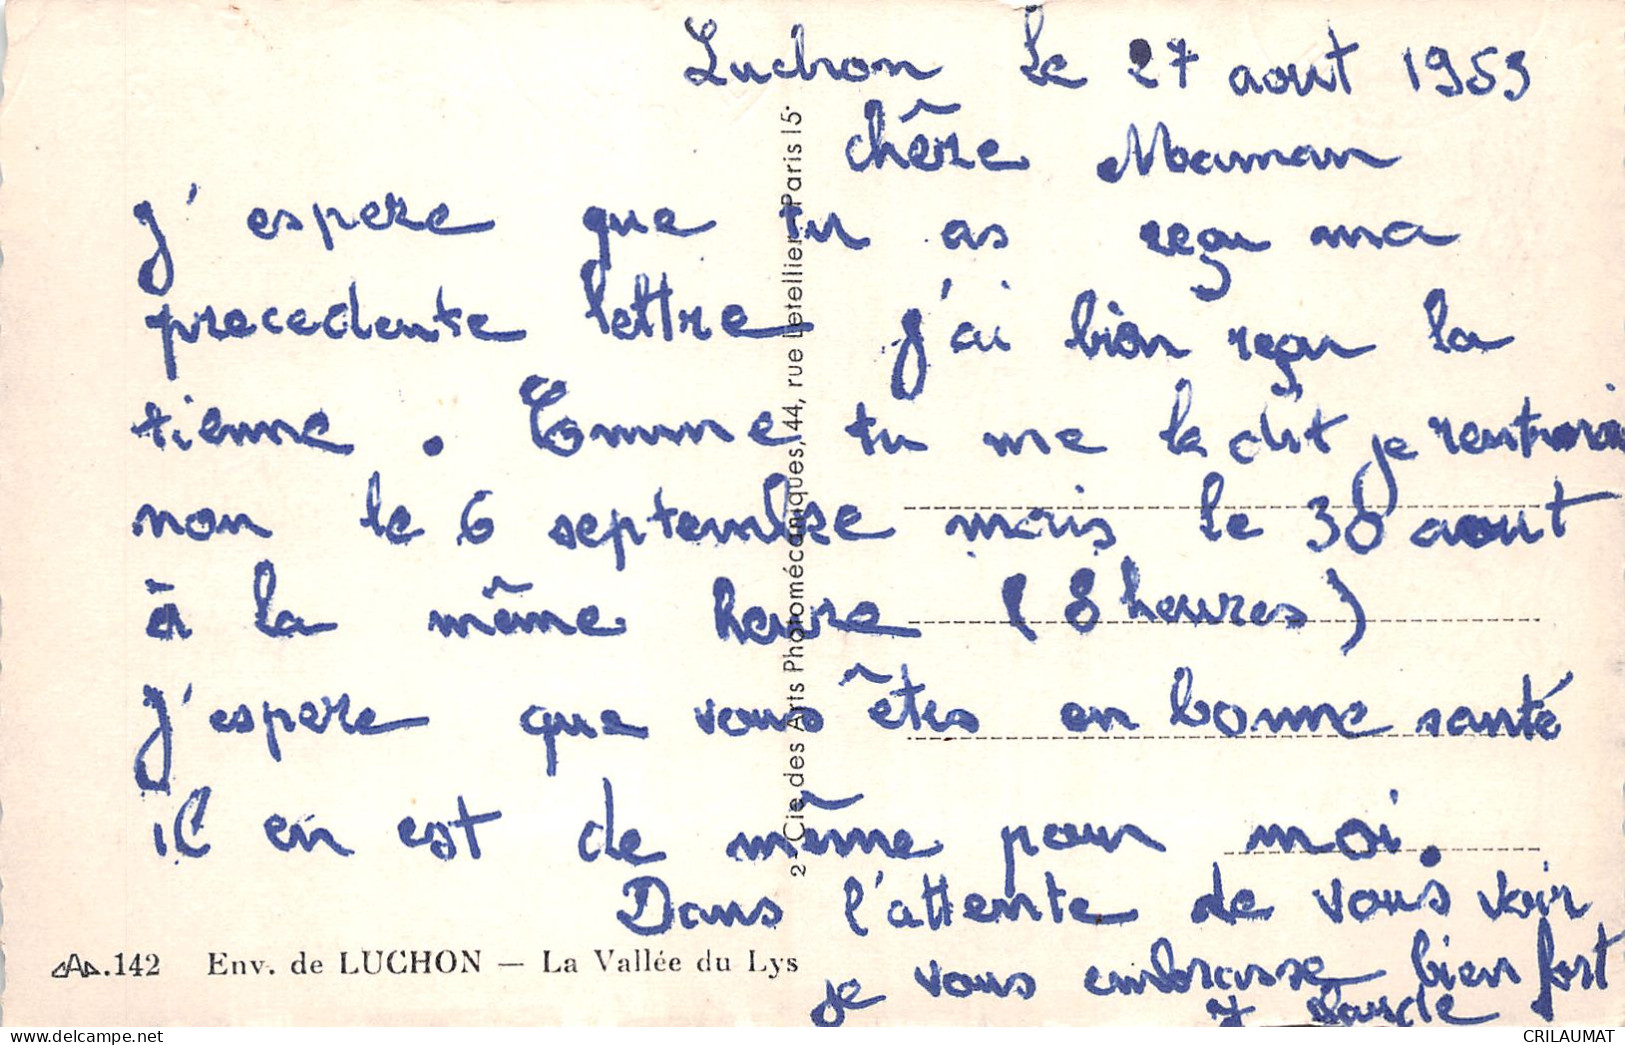 Luchon le 27 aout 1953
chêre Maman
j'espere que tu as reçu ma
precedente lettre j'ai bien reçu la
tienne . Comme tu me le dit je rentrerai
non le 6 septembre mais le 30 aout
à la même heure (8 heures)
j'espere que vous êtes en bonne santé
il en est de même pour moi.
Dans l'attente de vous voir
je vous embrasse bien fort
2 - Cie des Arts Photomécaniques, 44, rue Letellier - Paris 15e
.142 Env. de LUCHON — La Vallée du Lys
CRILAUMAT